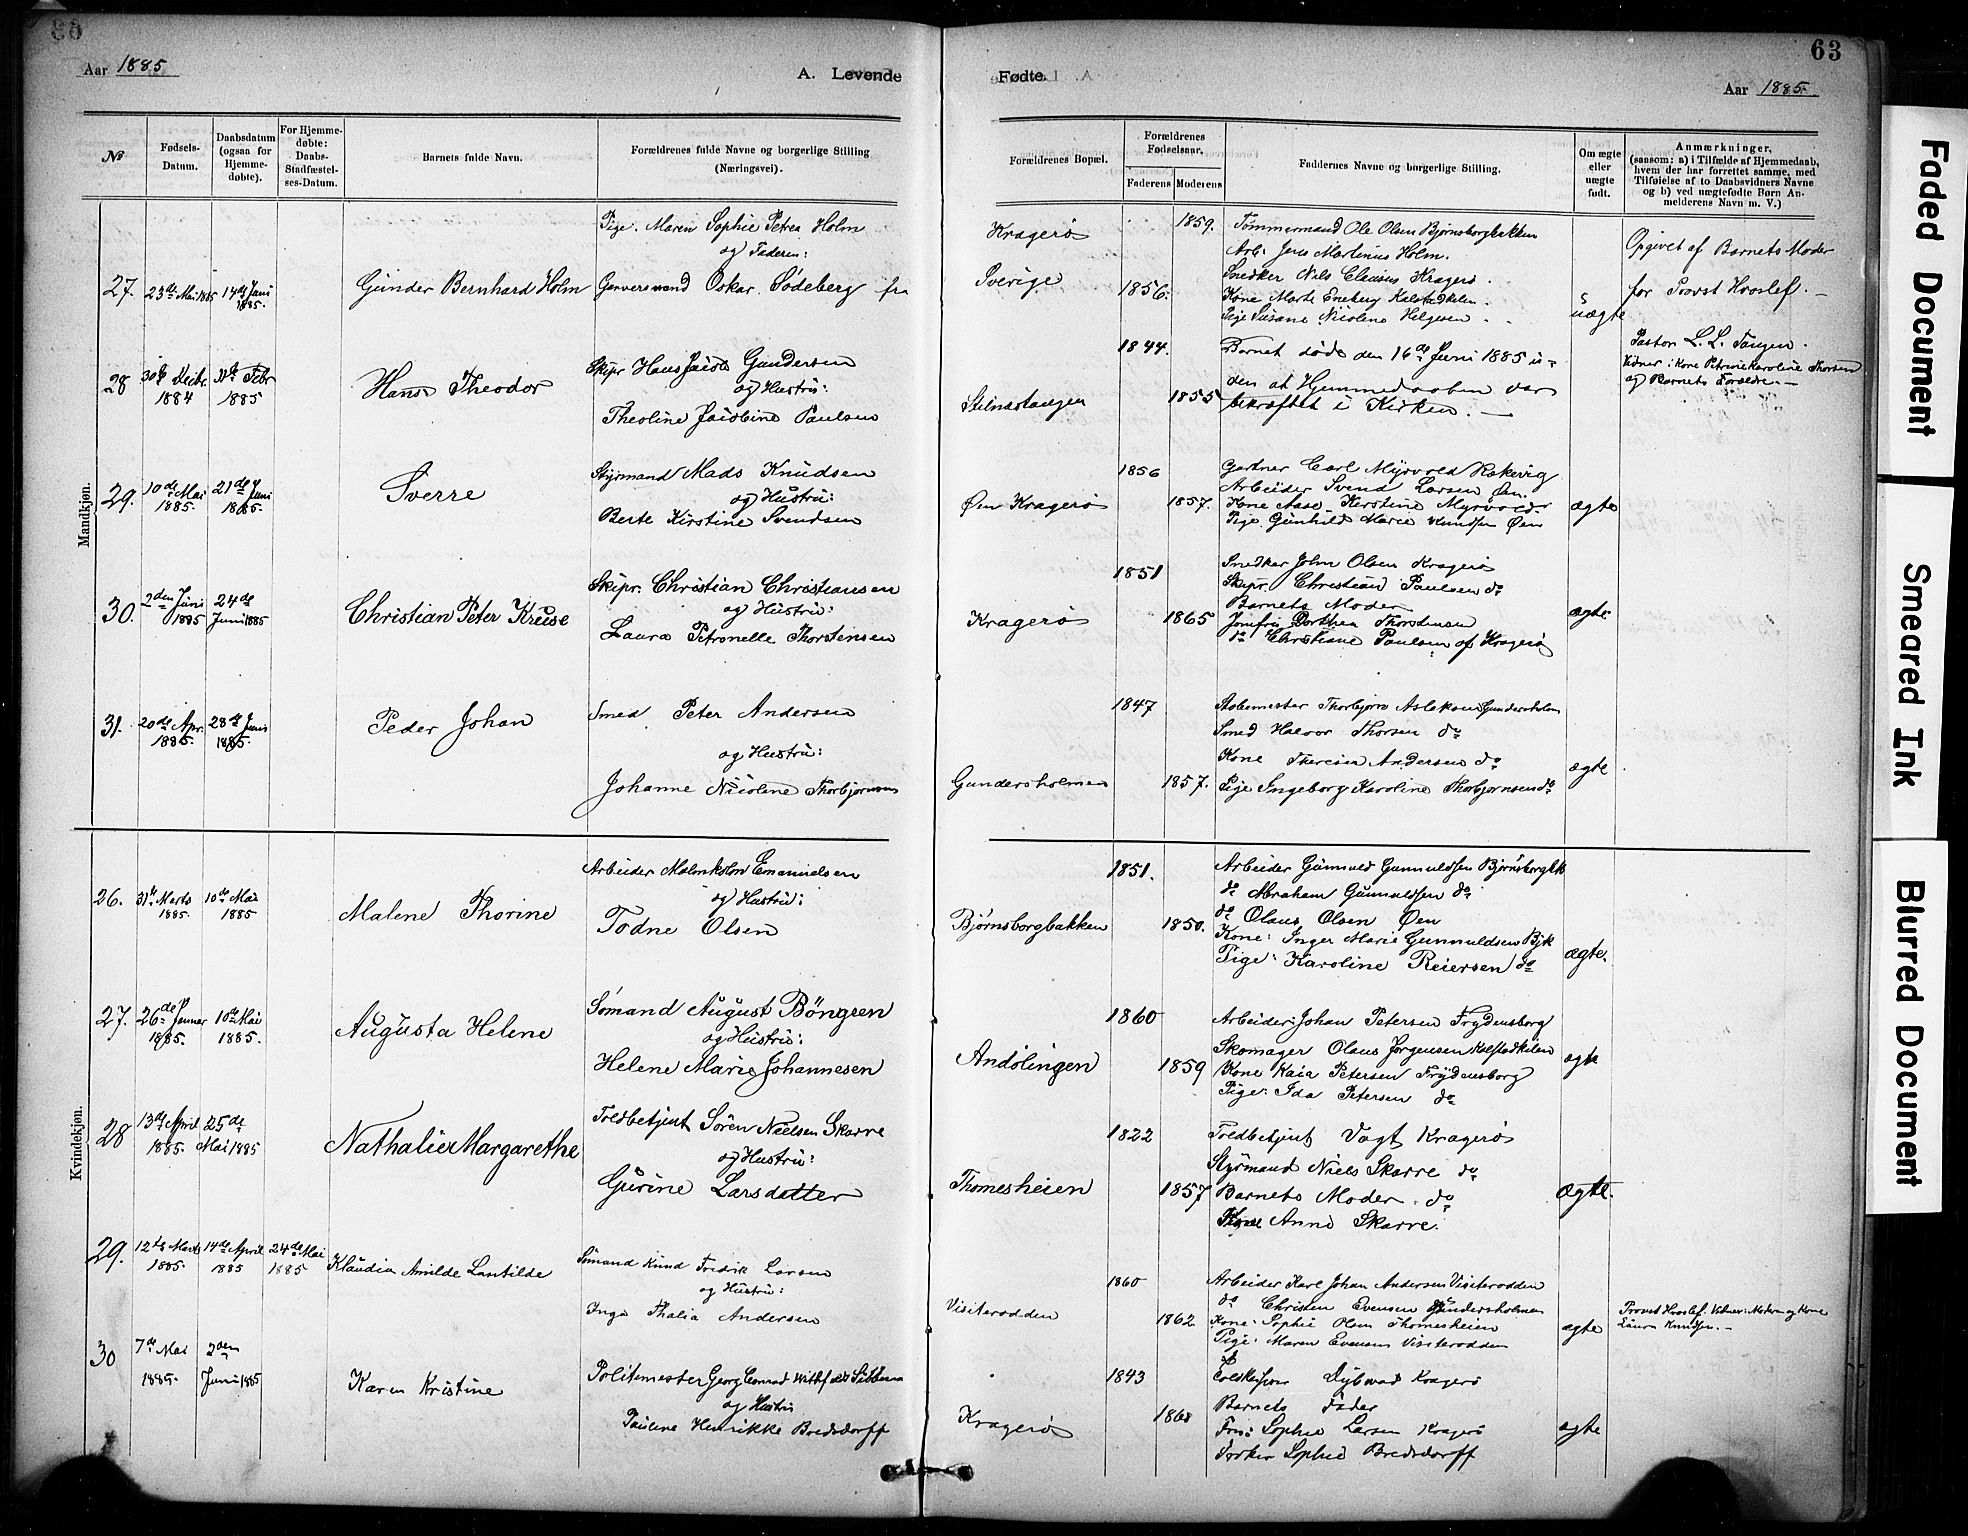 63
Aar 1885
A. Levende
Fødte.
Aar 1885.
№
Fødsels-Datum.
Daabsdatum (ogsaa for Hjemme-døbte).
For Hjemme-døbte: Daabs-Stadfæstel-ses-Datum.
Barnets fulde Navn.
Forældrenes fulde Navne og borgerlige Stilling (Næringsvei).
Forældrenes Bopæl.
Forældrenes Fødselsaar.
Faderens
Moderens
Faddernes Navne og borgerlige Stilling.
Om ægte eller uægte født.
Anmærkninger,
(saasom: a) i Tilfælde af Hjemmedaab,
hvem der har forrettet samme, med
Tilføielse af to Daabsvidners Navne
og b) ved uægtefødte Børn An-
melderens Navn m. V.)
Mandkjøn.
27.
23de Mai 1885
14de Juni 1885.
Gunder Bernhard Holm
Pige. Maren Sophie Petrea Holm
og Faderen:
Garversvend Oskar Södeberg fra
Kragerø
Sverige
1859.
1856.
Tømmermand Ole Olsen Bjørnsborgbakken
Arb: Jens Martinus Holm.
Snedker Nils Clausen Kragerø.
Kone Marte Eneberg Kalstadkilen.
Pige Susane Nicoline Helgesen
uægte
Opgivet af Barnets Moder
for Provst Hvoslef. —
28
30te Decbr. 1884
Febr 1885
Hans Theodor
Skipr Hans Jacob Gundersen
og Hustru:
Theoline Jacobine Paulsen
Stilnestangen
1844.
1855
Barnet døde den 16de Juni 1885 u-
den at Hjemmedaaben var
bekræftet i Kirken. —
Pastor L. L. Tangen.
Vidner: Kone Petrine Karoline Thorsen
og Barnets Forældre. —
29.
10de Mai 1885.
21de Juni 1885.
Sverre
Styrmand Mads Knudsen
og Hustru:
Berte Kirstine Svendsen
Øen Kragerø
1856
1857.
Gartner Carl Myrvold Rakevig
Arbeider Svend Larsen Øen.
Kone Aase Kerstine Myrvold
Pige Gunhild Marie Knudsen Øen
ægte
30.
2den Juni 1885
24de Juni 1885
Christian Peter Kruse
Skipr. Christian Christiansen
og Hustru:
Laura Petronelle Thorstensen
Kragerø
1851
1865
Snedker John Olsen Kragerø
Skipr. Christian Paulsen do
Barnets Moder
Jomfru Dorthea Thorstensen
do Christiane Paulsen af Kragerø
ægte
31.
20de Apr. 1885.
28de Juni 1885.
Peder Johan
Smed Peter Andersen
og Hustru:
Johanne Nicoline Thorbjørnsen
Gundersholmen
1847
1857.
Stolemester Thorbjørn Aslaksen Gundersholmen
Smed Halvor Thorsen do
Kone Theresia Andersen do
Pige Ingeborg Karoline Thorbjørnsen do
ægte
Kvindekjøn.
26.
31te Marts 1885.
10de Mai 1885
Malene Thorine
Arbeider Malmkolm Emanuelsen
og Hustru:
Todne Olsen
Bjørnsborgbakken
1851.
1850.
Arbeider Gunnuld Gunnuldsen Bjørnsborgbk
do Abraham Gunnuldsen do
do Olaus Olsen Øen
Kone: Inger Marie Gunnuldsen Bjbk
Pige: Karoline Reiersen do
ægte.
27.
26de Januar 1885.
10de Mai 1885.
Augusta Helene
Sømand August Böngsen
og Hustru:
Helene Marie Johannesen
Andölingen
1860
1859
Arbeider Johan Petersen Frydensborg
Skomager Olaus Jørgensen Kalstadkilen
Kone Kaia Petersen Frydensborg
Pige: Ida Petersen do
ægte
28
13de April 1885.
25de Mai 1885
Nathalie Margarethe
Toldbetjent Sören Nielsen Skarre
og Hustru:
Gurine Larsdatter
Thomesheien
1822
1857
Toldbetjent Vogt Kragerø
Styrmand Niels Skarre do
Barnets Moder. do
Anne Skarre.
ægte.
29.
12te Marts 1885.
14de April 1885
24de Mai 1885
Klaudia Amilde Lantilde
Sømand Knud Fredrik Larsen
og Hustru:
Inga Thalia Andersen
Visiterodden
1860
1862
Arbeider Karl Johan Andersen Visiterodden
do Christen Evensen Gundersholmen
Kone: Sophie Olsen Thomesheien
Pige: Maren Evensen Visiterodden
ægte
Provst Hvoslef. Vidner: Moderen og Kone
Laura Knudsen. —
30
7de Mai 1885.
2den Juni 1885
Karen Kristine
Politimester Georg Conrad Sibbern
og Hustru
Pauline Henrikke Bredsdorff
Kragerø
1843
1868
Dybwad Kragerø
Barnets Fader
Fru: Sophie Larsen Kragerø
Frøken Sophie Bredsdorff
ægte
Faded Document
Smeared Ink
Blurred Document